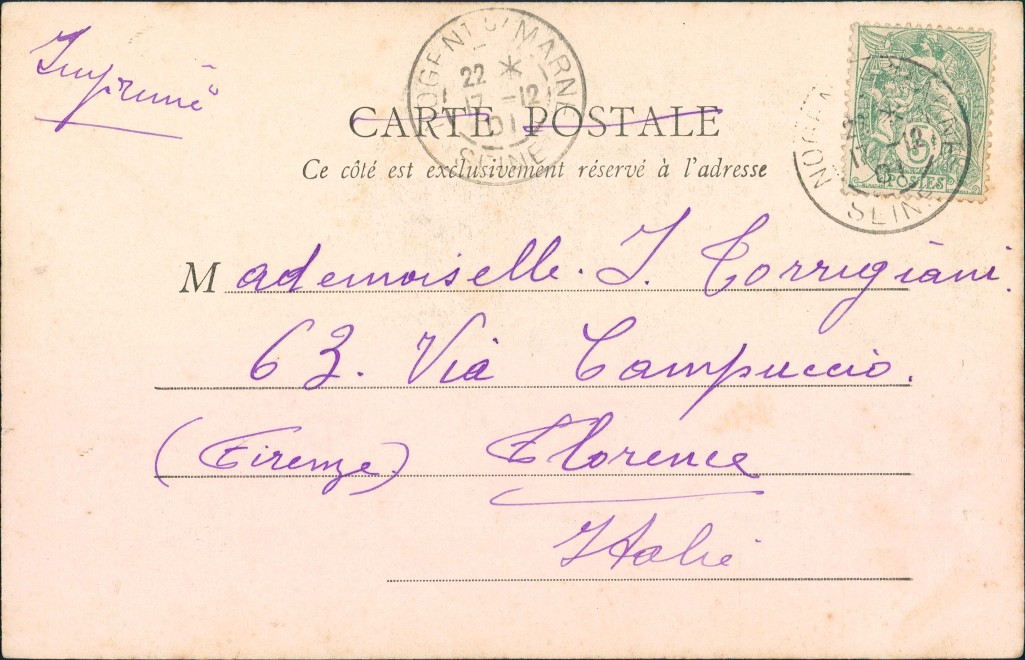 Imprimé
NOGENT S/ MARNE
22 *
17 -12
01
SEINE
CARTE POSTALE
Ce côté est exclusivement réservé à l'adresse
Mademoiselle. I. Torrigiani.
63. Via Campuccio.
(Firenze) Florence
Italie